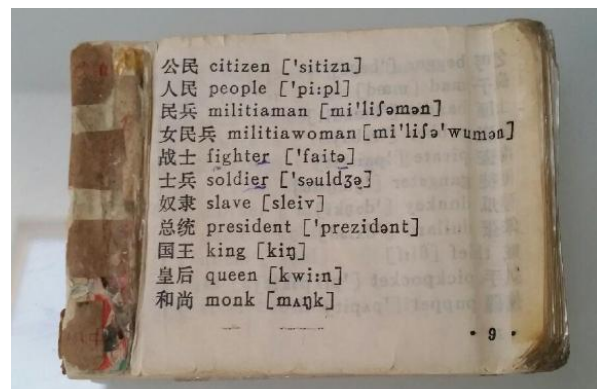 公民 citizen ['sitizn]
人民 people ['pi:pl]
民兵 militiaman [mi'liʃəmən]
女民兵 militiawoman [mi'liʃə'wumən]
战士 fighter ['faitə]
士兵 soldier ['səuldʒə]
奴隶 slave [sleiv]
总统 president ['prezidənt]
国王 king [kiŋ]
皇后 queen [kwi:n]
和尚 monk [mʌŋk]
· 9 ·